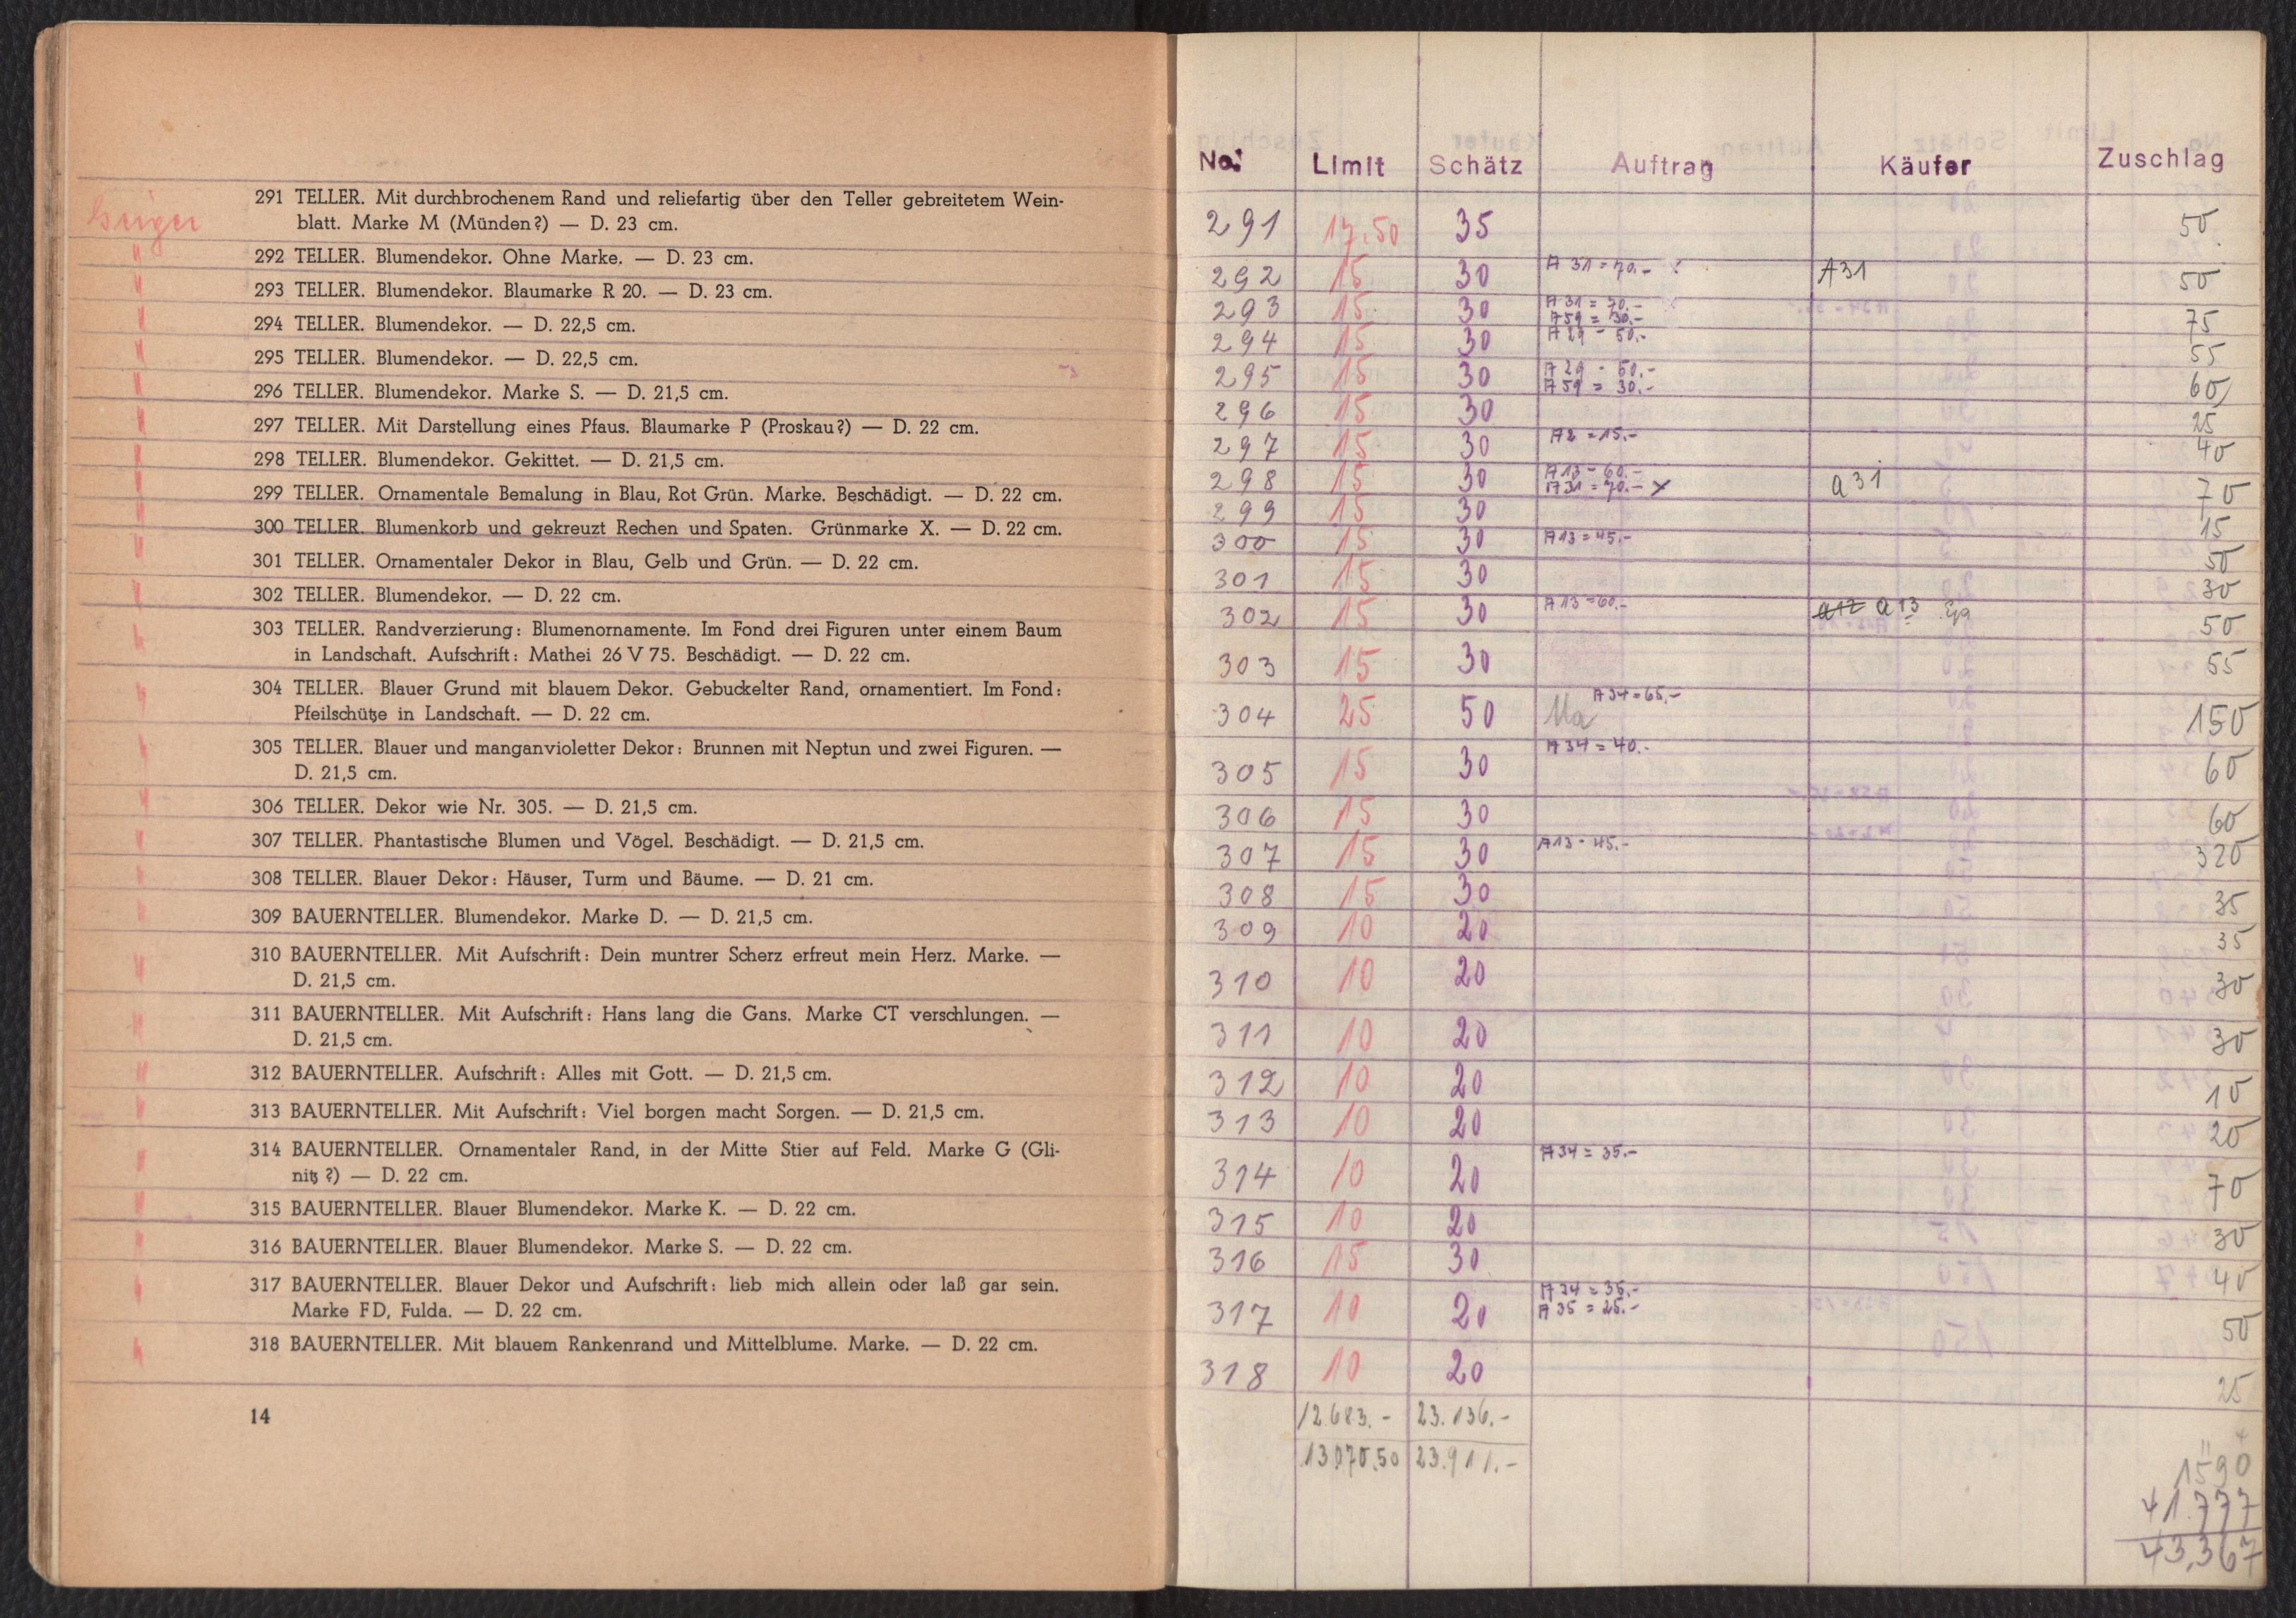 291 TELLER. Mit durchbrochenem Rand und reliefartig über den Teller gebreitetem Wein-
blatt. Marke M (Münden?) — D. 23 cm.
292 TELLER. Blumendekor. Ohne Marke. — D. 23 cm.
293 TELLER. Blumendekor. Blaumarke R 20. — D. 23 cm.
294 TELLER. Blumendekor. — D. 22,5 cm.
295 TELLER. Blumendekor. — D. 22,5 cm.
296 TELLER. Blumendekor. Marke S. — D. 21,5 cm.
297 TELLER. Mit Darstellung eines Pfaus. Blaumarke P (Proskau?) — D. 22 cm.
298 TELLER. Blumendekor. Gekittet. — D. 21,5 cm.
299 TELLER. Ornamentale Bemalung in Blau, Rot Grün. Marke. Beschädigt. — D. 22 cm.
300 TELLER. Blumenkorb und gekreuzt Rechen und Spaten. Grünmarke X. — D. 22 cm.
301 TELLER. Ornamentaler Dekor in Blau, Gelb und Grün. — D. 22 cm.
302 TELLER. Blumendekor. — D. 22 cm.
303 TELLER. Randverzierung: Blumenornamente. Im Fond drei Figuren unter einem Baum
in Landschaft. Aufschrift: Mathei 26 V 75. Beschädigt. — D. 22 cm.
304 TELLER. Blauer Grund mit blauem Dekor. Gebuckelter Rand, ornamentiert. Im Fond:
Pfeilschütze in Landschaft. — D. 22 cm.
305 TELLER. Blauer und manganvioletter Dekor: Brunnen mit Neptun und zwei Figuren. —
D. 21,5 cm.
306 TELLER. Dekor wie Nr. 305. — D. 21,5 cm.
307 TELLER. Phantastische Blumen und Vögel. Beschädigt. — D. 21,5 cm.
308 TELLER. Blauer Dekor: Häuser, Turm und Bäume. — D. 21 cm.
309 BAUERNTELLER. Blumendekor. Marke D. — D. 21,5 cm.
310 BAUERNTELLER. Mit Aufschrift: Dein muntrer Scherz erfreut mein Herz. Marke. —
D. 21,5 cm.
311 BAUERNTELLER. Mit Aufschrift: Hans lang die Gans. Marke CT verschlungen. —
D. 21,5 cm.
312 BAUERNTELLER. Aufschrift: Alles mit Gott. — D. 21,5 cm.
313 BAUERNTELLER. Mit Aufschrift: Viel borgen macht Sorgen. — D. 21,5 cm.
314 BAUERNTELLER. Ornamentaler Rand, in der Mitte Stier auf Feld. Marke G (Gli-
nitz ?) — D. 22 cm.
315 BAUERNTELLER. Blauer Blumendekor. Marke K. — D. 22 cm.
316 BAUERNTELLER. Blauer Blumendekor. Marke S. — D. 22 cm.
317 BAUERNTELLER. Blauer Dekor und Aufschrift: lieb mich allein oder laß gar sein.
Marke FD, Fulda. — D. 22 cm.
318 BAUERNTELLER. Mit blauem Rankenrand und Mittelblume. Marke. — D. 22 cm.
14
No. Limit Schätz Auftrag Käufer Zuschlag
291 17.50 35 50
292 15 30 A 31 = 70.- A31 50
293 15 30 A 31 = 70.- 75
A 59 = 30.-
294 15 30 A 29 - 50.- 55
295 15 30 A 29 - 60.- 60
A 59 = 30.-
296 15 30 25
297 15 30 A2 = 15.- 40
298 15 30 A 13 - 60.- a31 70
A 31 = 70.- x
299 15 30 15
300 15 30 A 13 = 45.- 50
301 15 30 30
302 15 30 A 13 = 60.- a12 a 13 50
303 15 30 55
304 25 50 A 34 = 65.- 150
305 15 30 A 34 = 40.- 60
306 15 30 60
307 15 30 A 13 - 45.- 320
308 15 30 35
309 10 20 35
310 10 20 30
311 10 20 30
312 10 20 10
313 10 20 20
314 10 20 A 34 = 35.- 70
315 10 20 30
316 15 30 40
317 10 20 A 34 = 35.- 50
A 35 = 25.-
318 10 20 25
12.683.- 23.136.-
13.070.50 23.911.-
1590
41.777
43,367